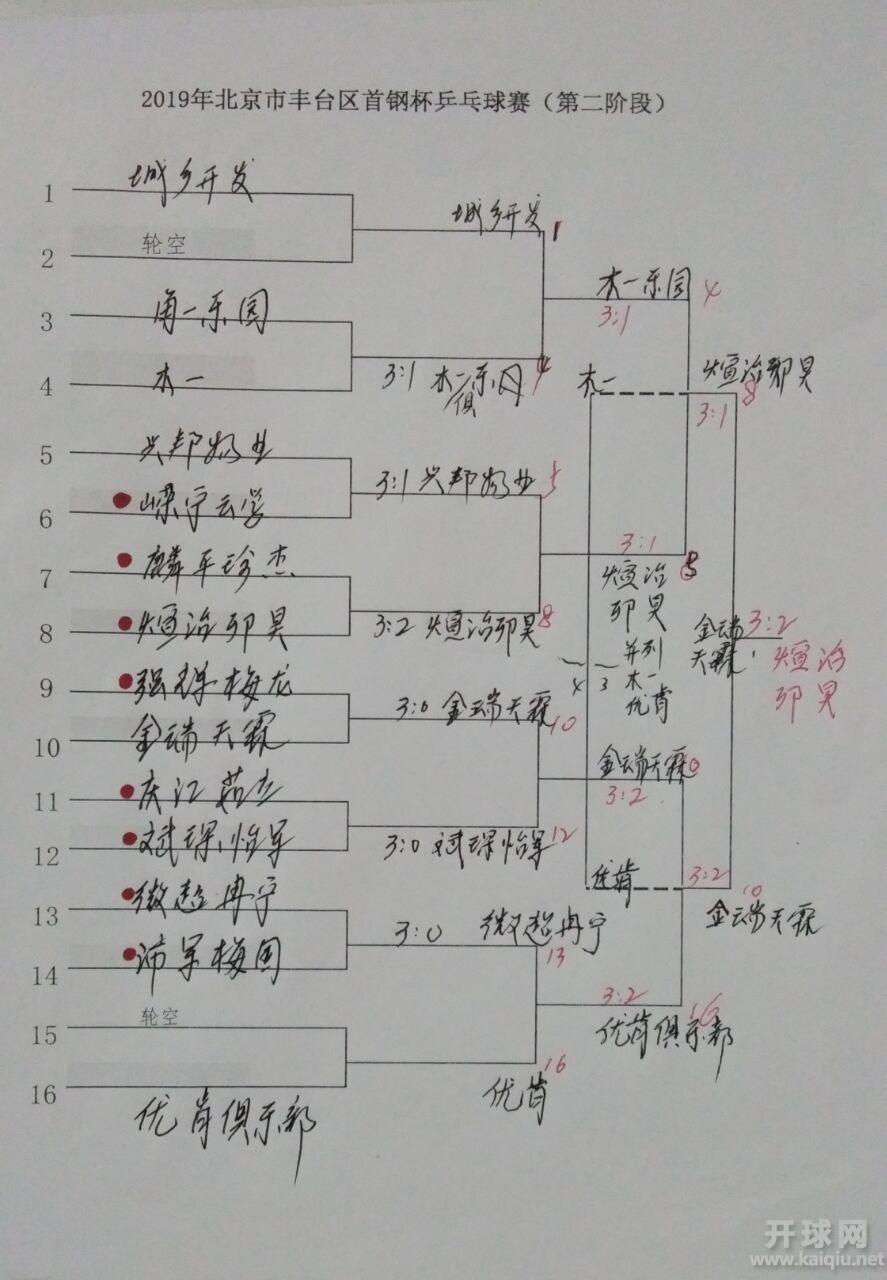 2019年北京市丰台区首钢杯乒乓球赛（第二阶段）
1 城乡开发
2 轮空
3 角一乐园
4 木一
5 兴邦物业
6 嵘宁云学
7 麟平珍杰
8 煊冶邵昊
9 强 梅龙
10 金瑞天霖
11 庆江茹立
12 斌琛怡军
13 微超冉宁
14 沛军梅国
15 轮空
16 优肯俱乐部
城乡开发 1
3:1 木一乐 4
3:1 兴邦物业 5
3:2 煊冶邵昊 8
3:0 金瑞天霖 10
3:0 斌琛怡军 12
3:0 微超冉宁 13
优肯 16
木一乐园 4
3:1
3:1 8
煊冶
邵昊
金瑞天霖 10
3:2
3:2 16
优肯俱乐部
木一
优肯
4 3
并列
木一
优肯
煊冶邵昊 8
3:1
3:2 10
金瑞天霖
金瑞
天霖
3:2
煊冶
邵昊
开球网
www.kaiqiu.net